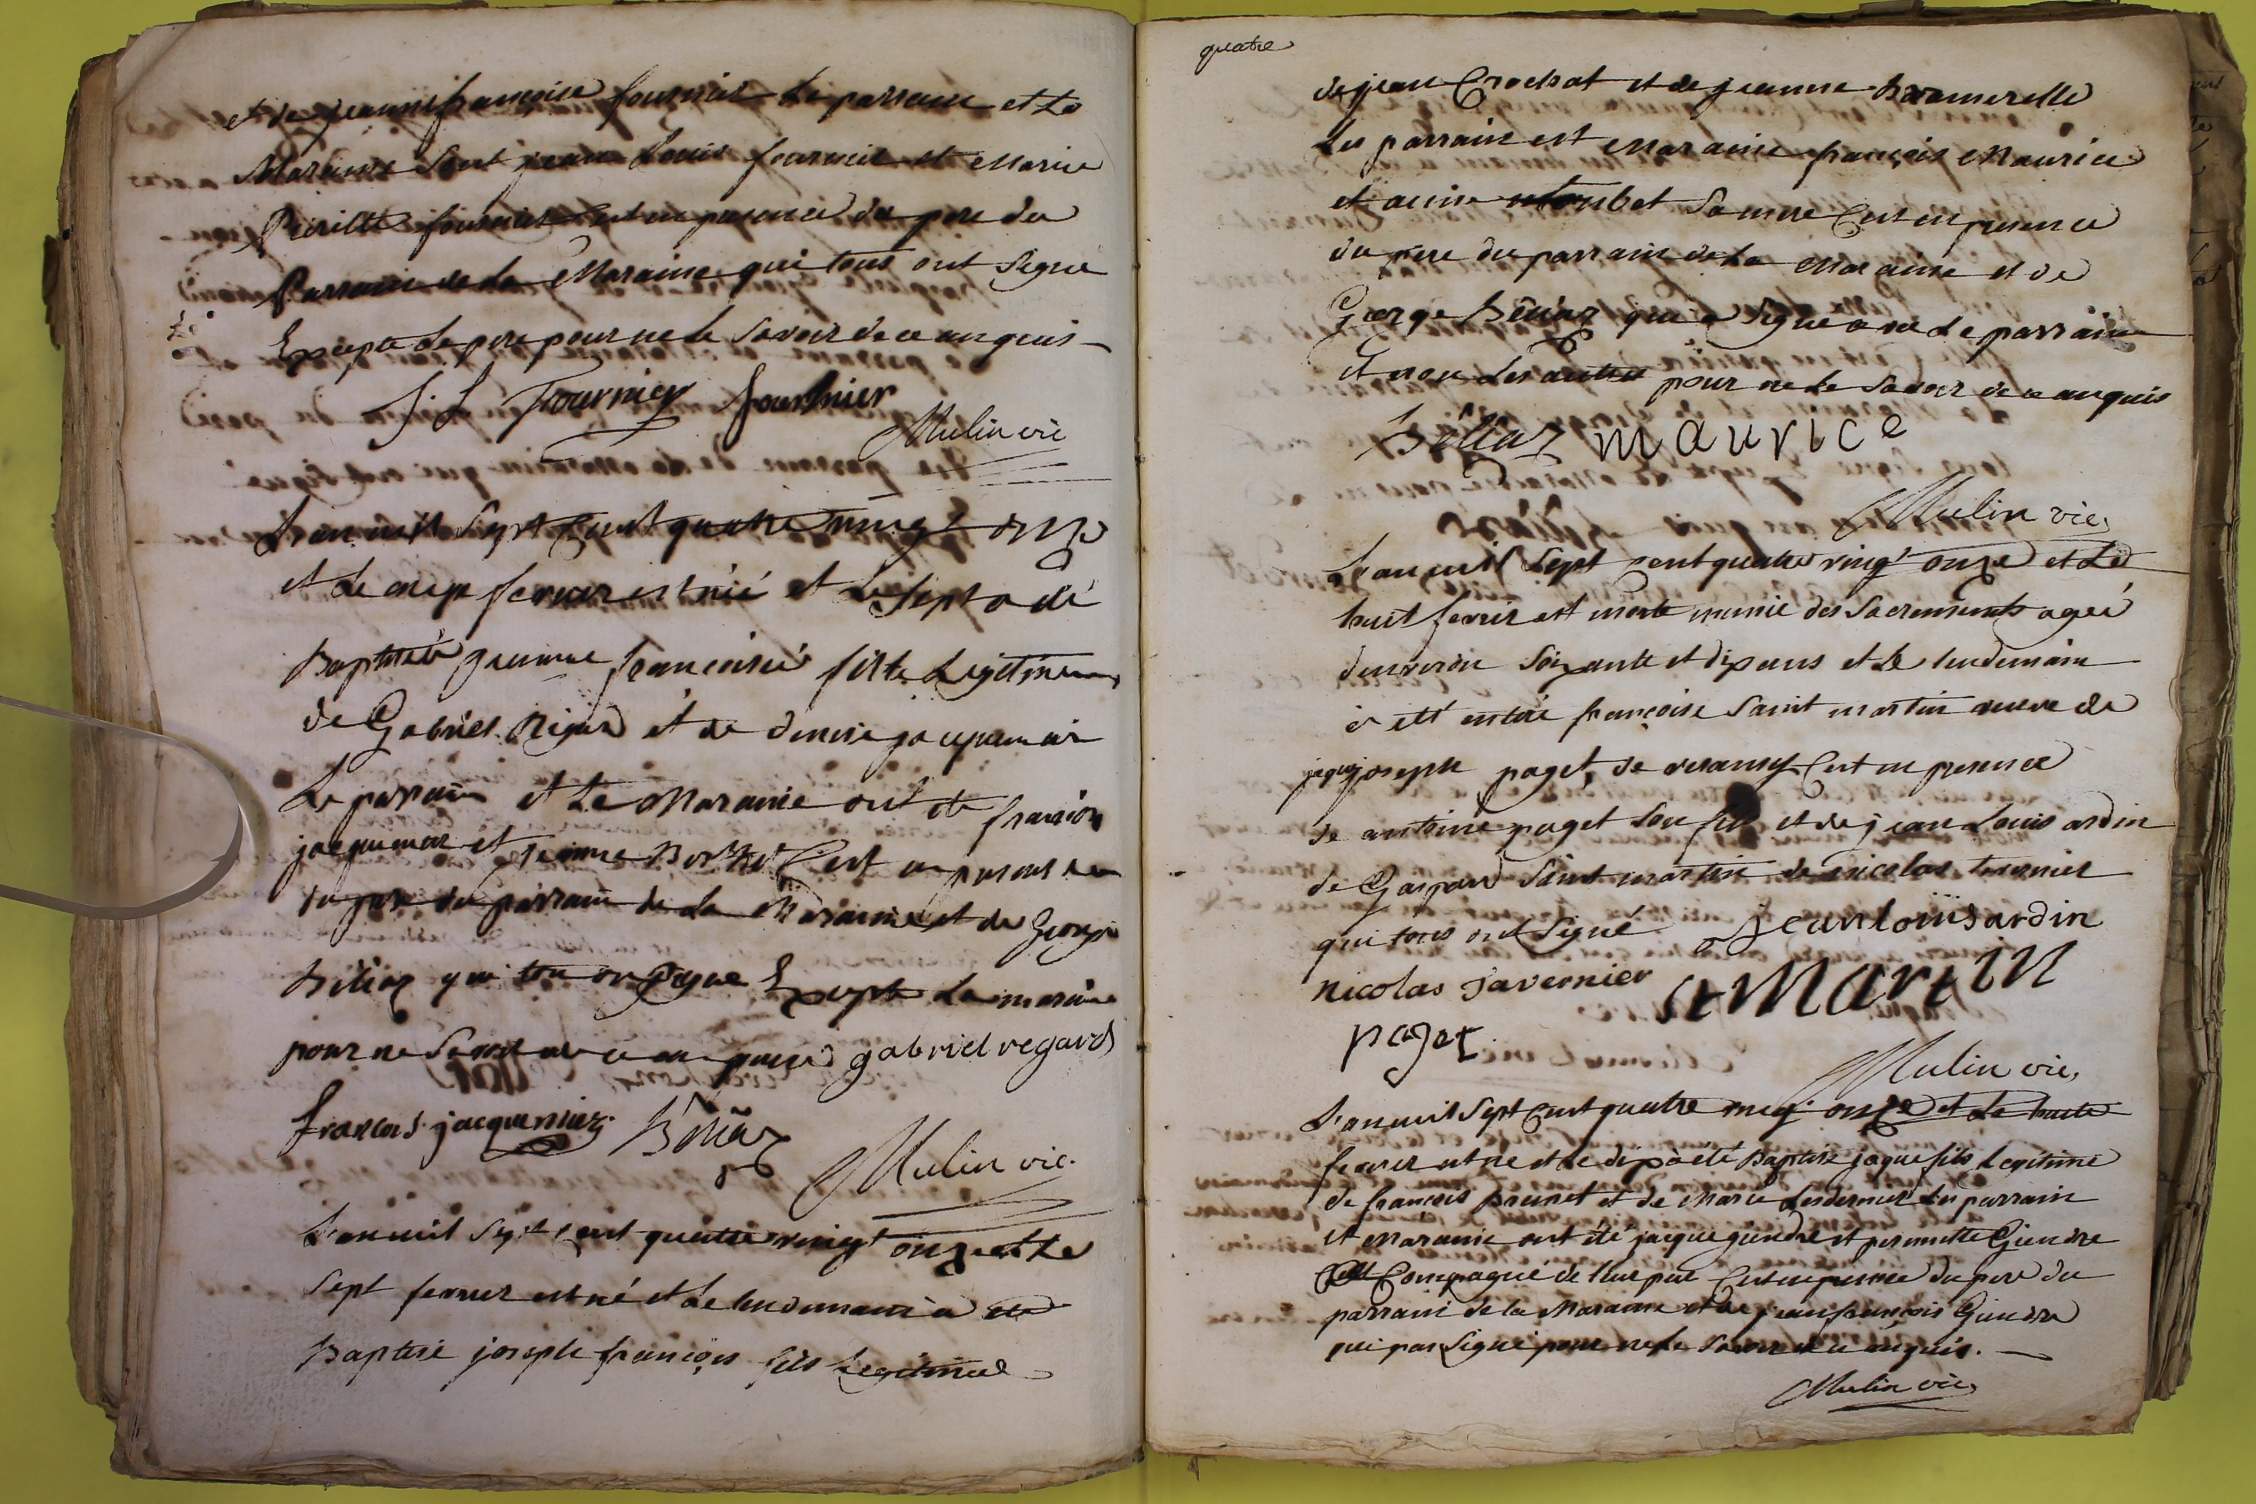 et de jeanne françoise fournier Le parrain et La
Maraine Sont jean Louis fournier et Marie
fournier C'est en presence du pere du
Parrain de La Maraine qui tous ont Signé
Excepte Le pere pour ne le Savoir de ce enquis
J. L Fournier fournier
Mulin vic
L'an mil Sept Cent quatre vingt onze
et Le fevrier est né et Le Sept a ete
Baptisée jeanne françoise fille Legitime
de Gabriel Regard et de denise jacquemar
Le parrain et La Maraine ont ete françois
jacquemar et jeanne C'est en presence
du pere du parrain de La Maraine et de George
Béliaz qui tous ont Signé Excepte La maraine
pour ne Savoir de ce enquis gabriel regard
françois jacquemier Béliaz
Mulin vic.
L'an mil Sept Cent quatre vingt onze et Le
Sept fevrier est né et Le lendemain a ete
Baptisé joseph françois fils Legitime
quatre
de jean Crochat et de jeanne
Les parrain et Maraine françois Maurice
et anne Sa mere C'est en presence
du pere du parrain de La Maraine et de
George Béliaz qui a Signé avec Le parrain
et non Les autres pour ne Le Savoir de ce enquis
Béliaz maurice
Mulin vic,
L'an mil Sept cent quatre vingt onze et Le
huit fevrier est morte munie des Sacrements agée
denviron Soixante et dix ans et Le lendemain
a été entéré françoise Saint martin veuve de
jaque joseph paget, de C'est en presence
de antoine paget Son fils et de jean Louis ardin
de Gaspard Saint martin de nicolas tavernier
qui tous ont Signé Jean loüis ardin
nicolas Tavernier st Martin
paget
Mulin vic,
L'an mil Sept Cent quatre vingt onze et Le huit
fevrier est né et Le dix a été Baptisé jaque fils Legitime
de françois prunet et de Marie Les parrain
et Maraine ont été jacque giendre et pernette Giendre
Compagnie de leur pere C'est en presence du pere du
parrain de la Maraine et de jean françois Giendre
qui pas Signé pour ne le Savoir de ce enquis.
Mulin vic,